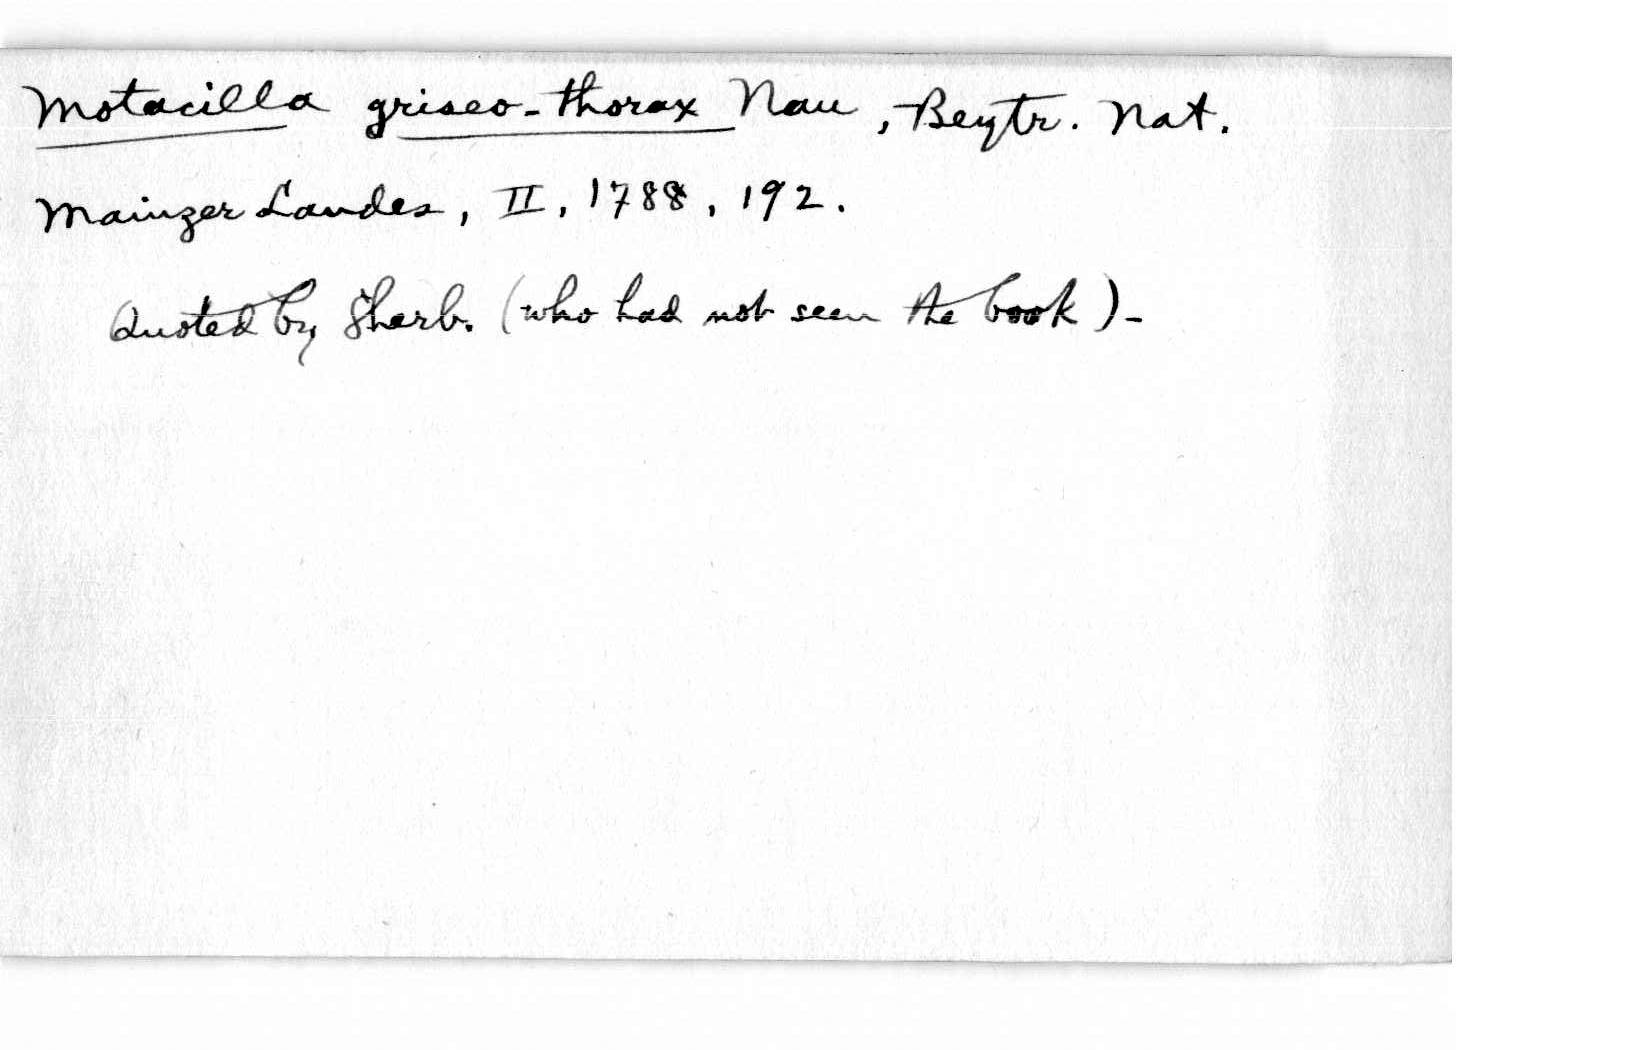 Motacilla griseo-thorax Nau, Beytr. Nat.
Mainzer Landes, II, 1788, 192.
Quoted by Sherb. (who had not seen the book)-